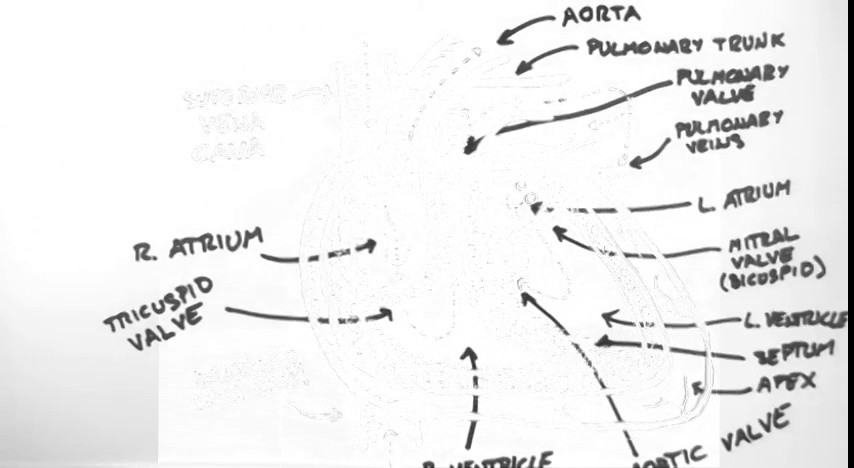 AORTA
PULMONARY TRUNK
PULMONARY
VALVE
PULMONARY
VEINS
SUPERIOR
VENA
CAVA
L. ATRIUM
R. ATRIUM
MITRAL
VALVE
(BICUSPID)
TRICUSPID
VALVE
L. VENTRICLE
SEPTUM
APEX
R. VENTRICLE
AORTIC VALVE